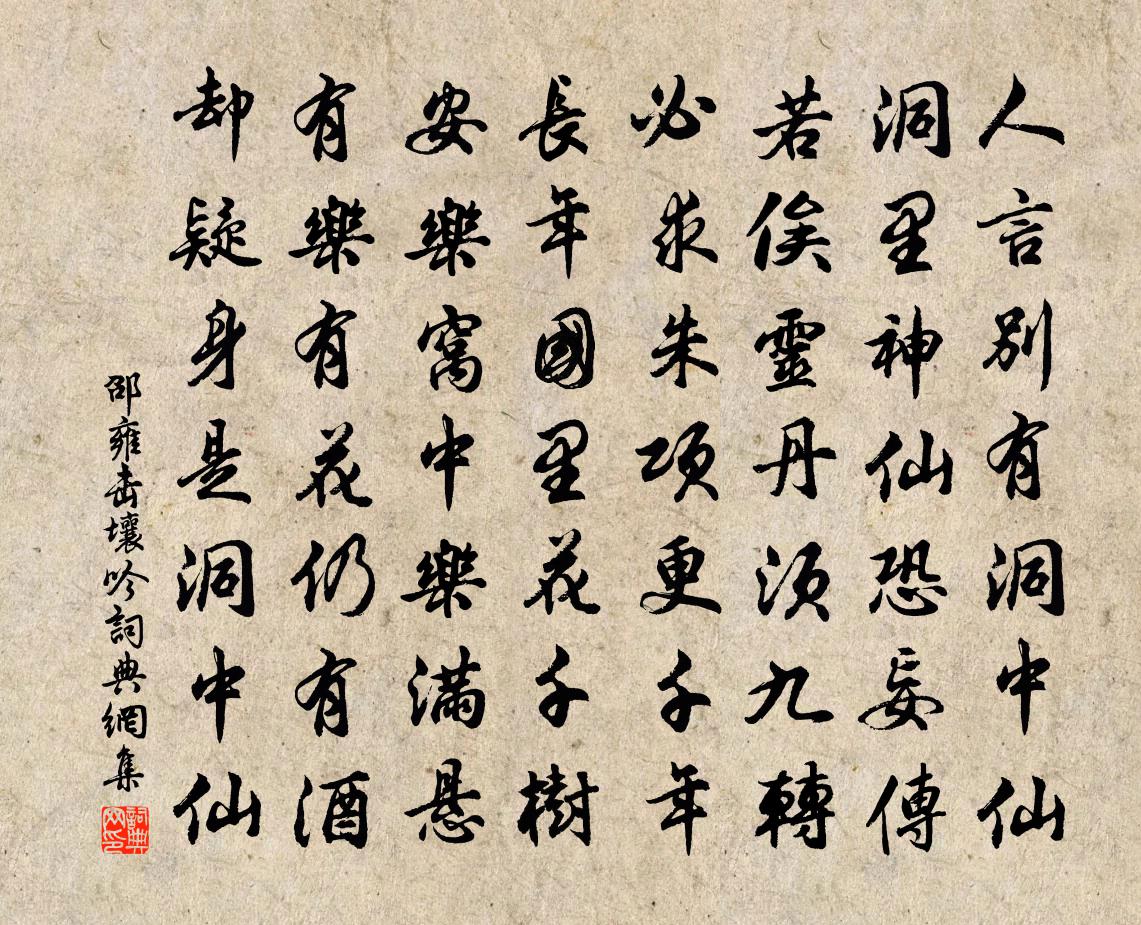 人言別有洞中仙
洞里神仙恐妄傳
若俟靈丹須九轉
必求朱項更千年
長年國里花千樹
安樂窩中樂滿悬
有樂有花仍有酒
却疑身是洞中仙
邵雍击壤吟詞典網集
詞典
网印